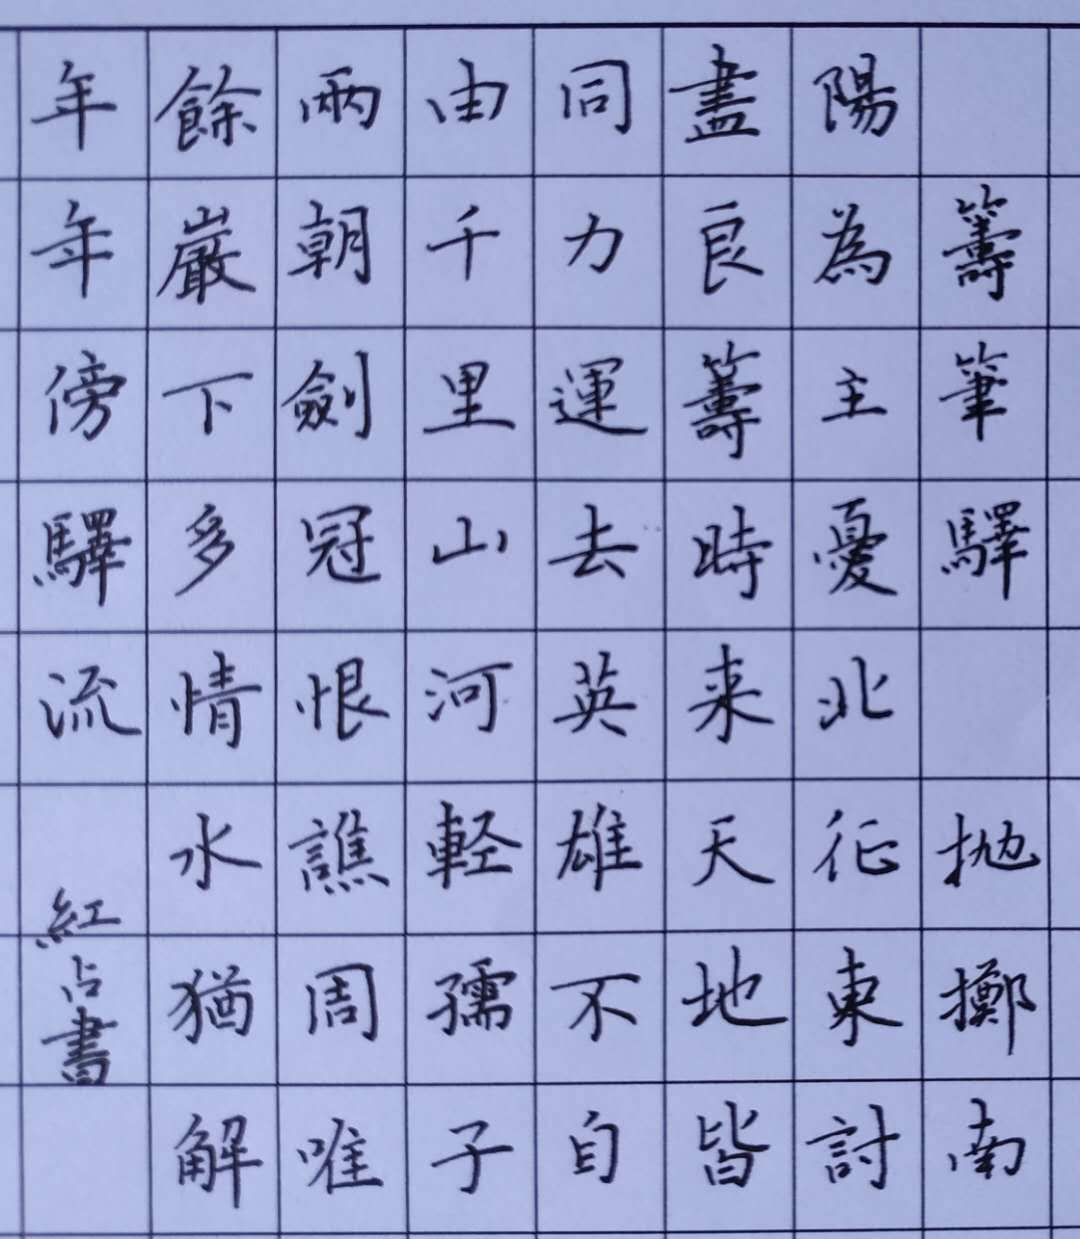 籌筆驛 抛擲南
陽為主憂北征東討
盡良籌時来天地皆
同力運去英雄不自
由千里山河軽孺子
兩朝劍冠恨譙周唯
餘巌下多情水猶解
年年傍驛流
紅占書